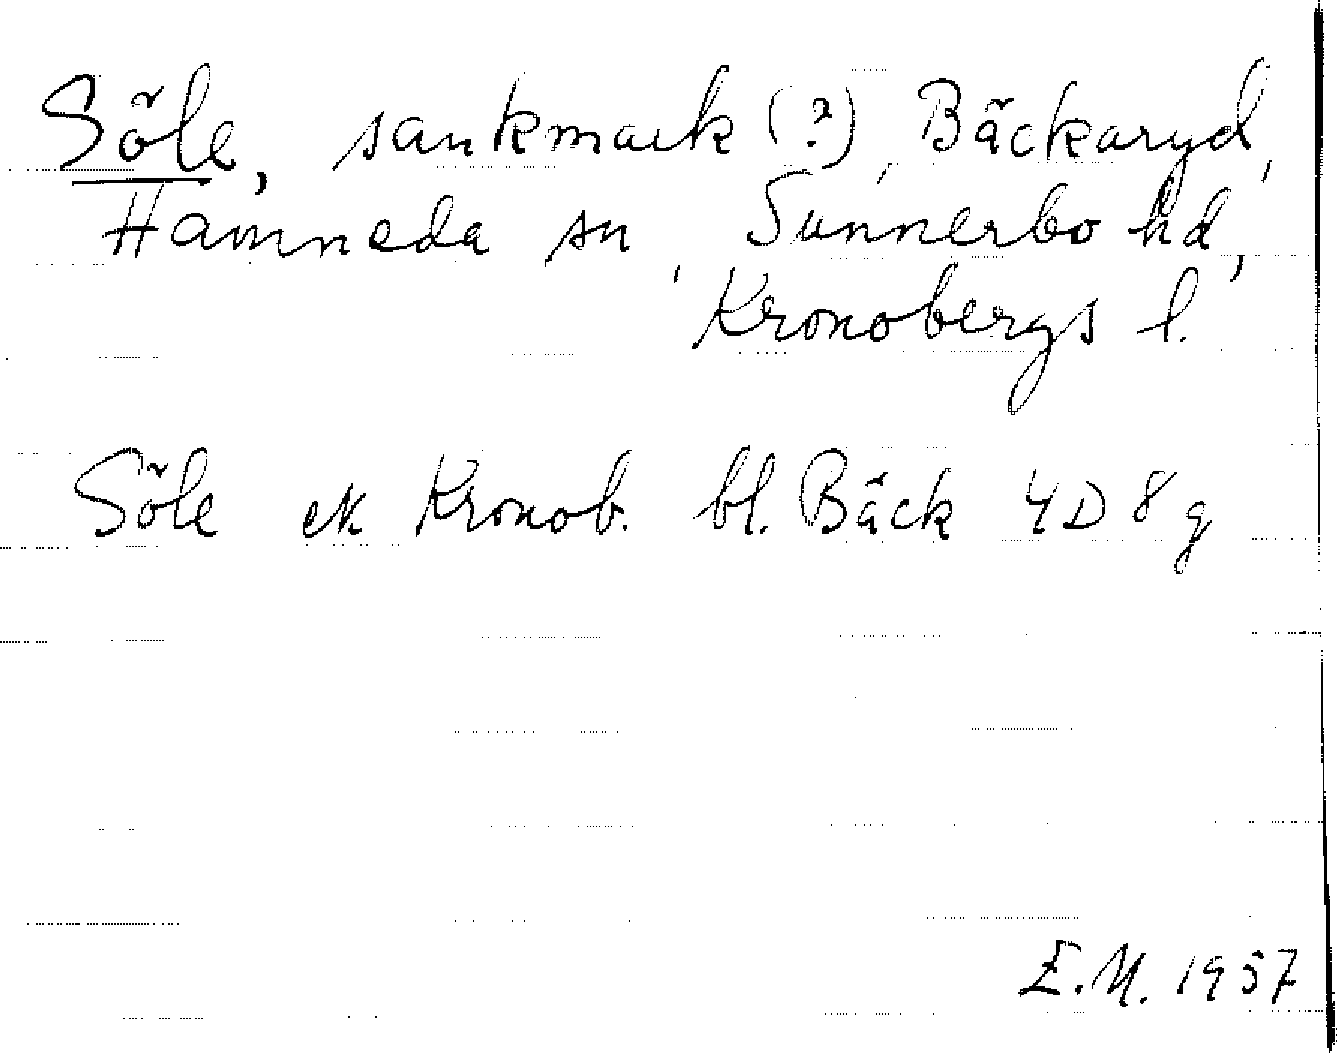 Söle, sankmark (?), Bäckaryd,
Hamneda sn, Sunnerbo hd,
Kronobergs l.
Söle ek Kronob. bl. Bäck 4D 8g
E.M. 1957